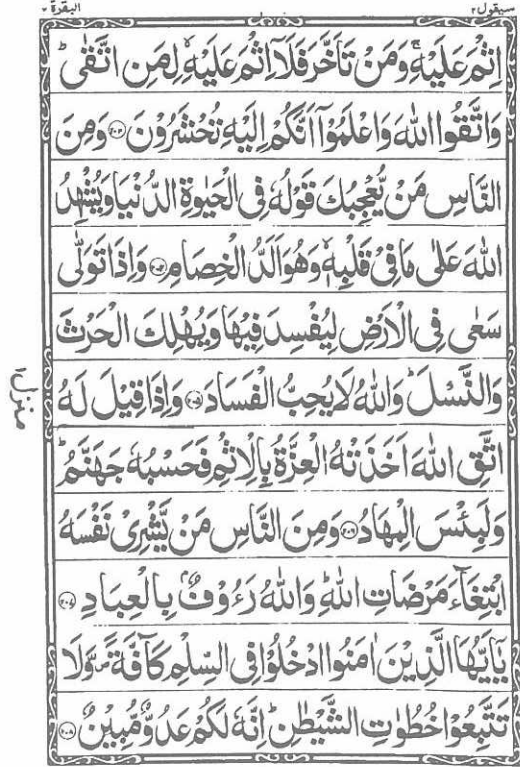 سیقول ۲ البقرة ۲
اِثْمَ عَلَیْهِ ۚ وَمَنْ تَاَخَّرَ فَلَاۤ اِثْمَ عَلَیْهِ ۙ لِمَنِ اتَّقٰی ؕ
وَاتَّقُوا اللّٰهَ وَاعْلَمُوْۤا اَنَّكُمْ اِلَیْهِ تُحْشَرُوْنَ ۝۲۰۳ وَمِنَ
النَّاسِ مَنْ یُّعْجِبُكَ قَوْلُهٗ فِی الْحَیٰوةِ الدُّنْیَا وَیُشْهِدُ
اللّٰهَ عَلٰی مَا فِیْ قَلْبِهٖ ۙ وَهُوَ اَلَدُّ الْخِصَامِ ۝۲۰۴ وَاِذَا تَوَلّٰی
سَعٰی فِی الْاَرْضِ لِیُفْسِدَ فِیْهَا وَیُهْلِكَ الْحَرْثَ
وَالنَّسْلَ ؕ وَاللّٰهُ لَا یُحِبُّ الْفَسَادَ ۝۲۰۵ وَاِذَا قِیْلَ لَهُ
اتَّقِ اللّٰهَ اَخَذَتْهُ الْعِزَّةُ بِالْاِثْمِ فَحَسْبُهٗ جَهَنَّمُ ؕ
وَلَبِئْسَ الْمِهَادُ ۝۲۰۶ وَمِنَ النَّاسِ مَنْ یَّشْرِیْ نَفْسَهُ
ابْتِغَآءَ مَرْضَاتِ اللّٰهِ ؕ وَاللّٰهُ رَءُوْفٌۢ بِالْعِبَادِ ۝۲۰۷
یٰۤاَیُّهَا الَّذِیْنَ اٰمَنُوا ادْخُلُوْا فِی السِّلْمِ كَآفَّةً ۪ وَّلَا
تَتَّبِعُوْا خُطُوٰتِ الشَّیْطٰنِ ؕ اِنَّهٗ لَكُمْ عَدُوٌّ مُّبِیْنٌ ۝۲۰۸
منزل ۱